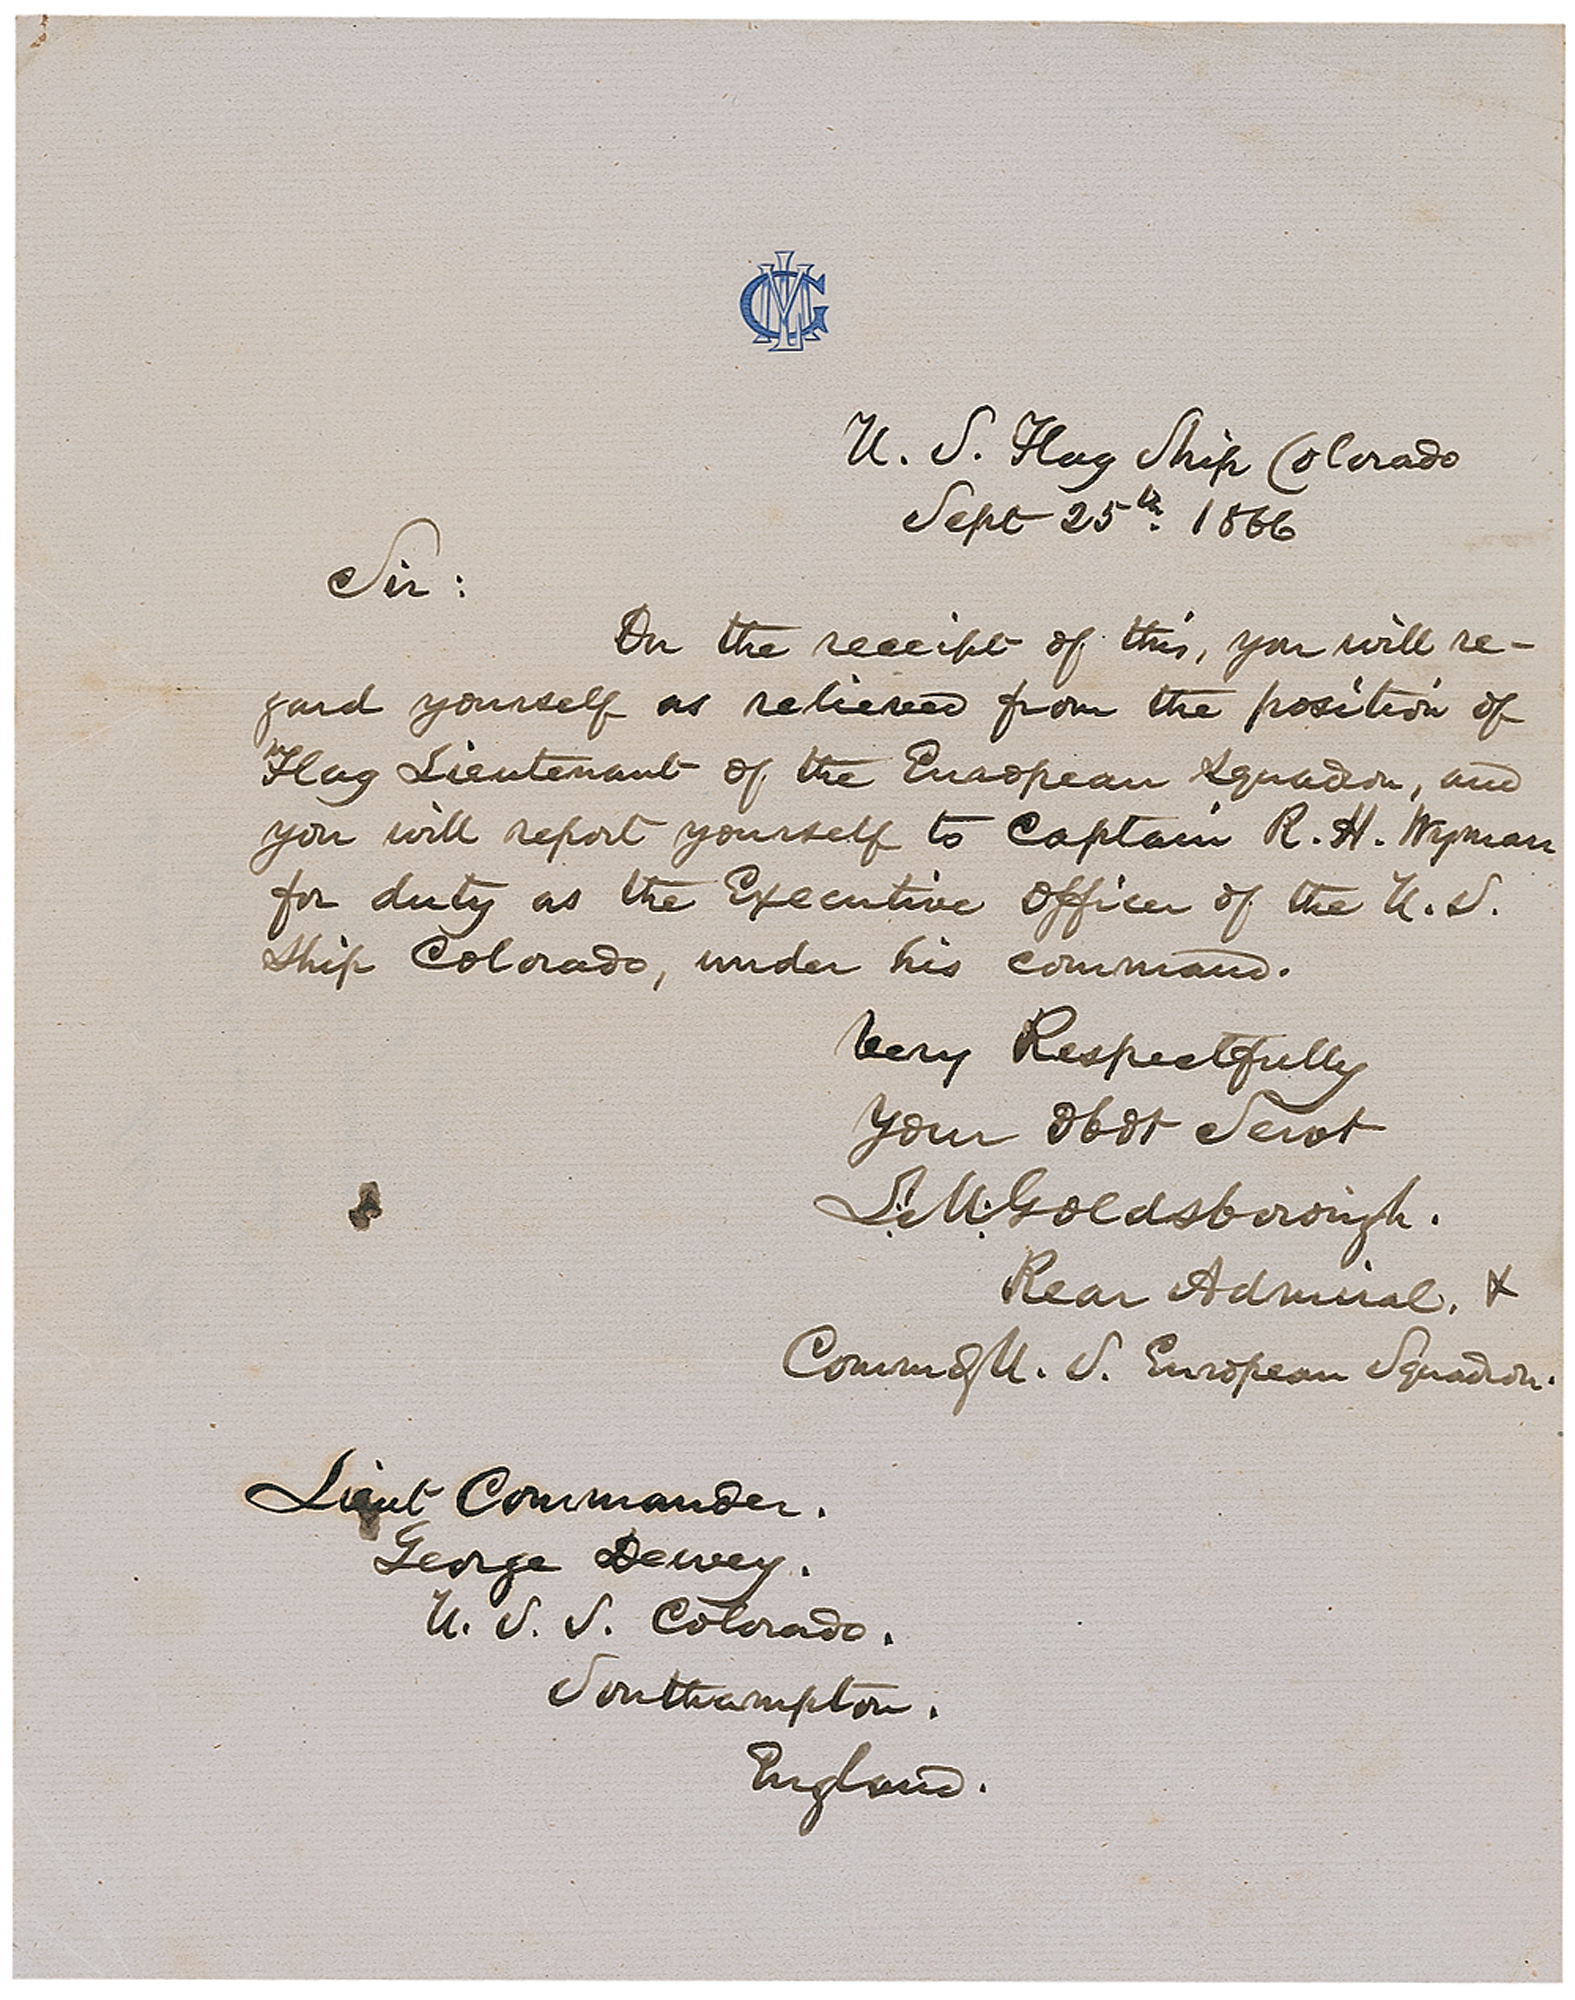 LMG
U. S. Flag Ship Colorado
Sept 25th. 1866
Sir:
On the receipt of this, you will re-
gard yourself as relieved from the position of
Flag Lieutenant of the European Squadron, and
you will report yourself to Captain R. H. Wyman
for duty as the Executive Officer of the U. S.
Ship Colorado, under his command.
Very Respectfully
Your Obdt Servt
L. M. Goldsborough.
Rear Admiral, &
Commdg U. S. European Squadron.
Lieut Commander.
George Dewey.
U. S. S. Colorado.
Southampton.
England.